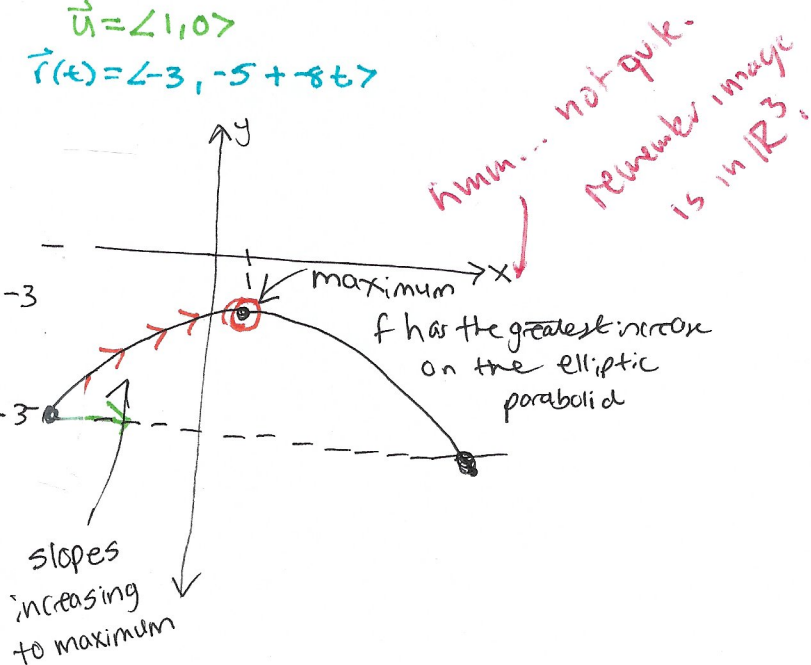 u⃗ = <1,0>
r⃗(t) = <-3, -5 + -8t>
y
hmm... not quite.
remember image
is in ℝ³.
x
-3
maximum
f has the greatest increase
on the elliptic
parabolid
-3
slopes
increasing
to maximum